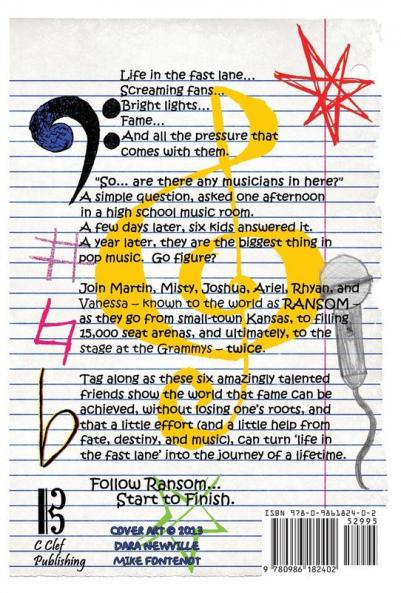 Life in the fast lane...
Screaming fans...
Bright lights...
Fame...
And all the pressure that
comes with them.
"So... are there any musicians in here?"
A simple question, asked one afternoon
in a high school music room.
A few days later, six kids answered it.
A year later, they are the biggest thing in
pop music. Go figure?
Join Martin, Misty, Joshua, Ariel, Rhyan, and
Vanessa – known to the world as RANSOM –
as they go from small-town Kansas, to filling
15,000 seat arenas, and ultimately, to the
stage at the Grammys – twice.
Tag along as these six amazingly talented
friends show the world that fame can be
achieved, without losing one's roots, and
that a little effort (and a little help from
fate, destiny, and music), can turn 'life in
the fast lane' into the journey of a lifetime.
Follow Ransom...
Start to Finish.
C Clef
Publishing
COVER ART © 2013
DARA NEWVILLE
MIKE FONTENOT
ISBN 978-0-9861824-0-2
52995
9 780986 182402